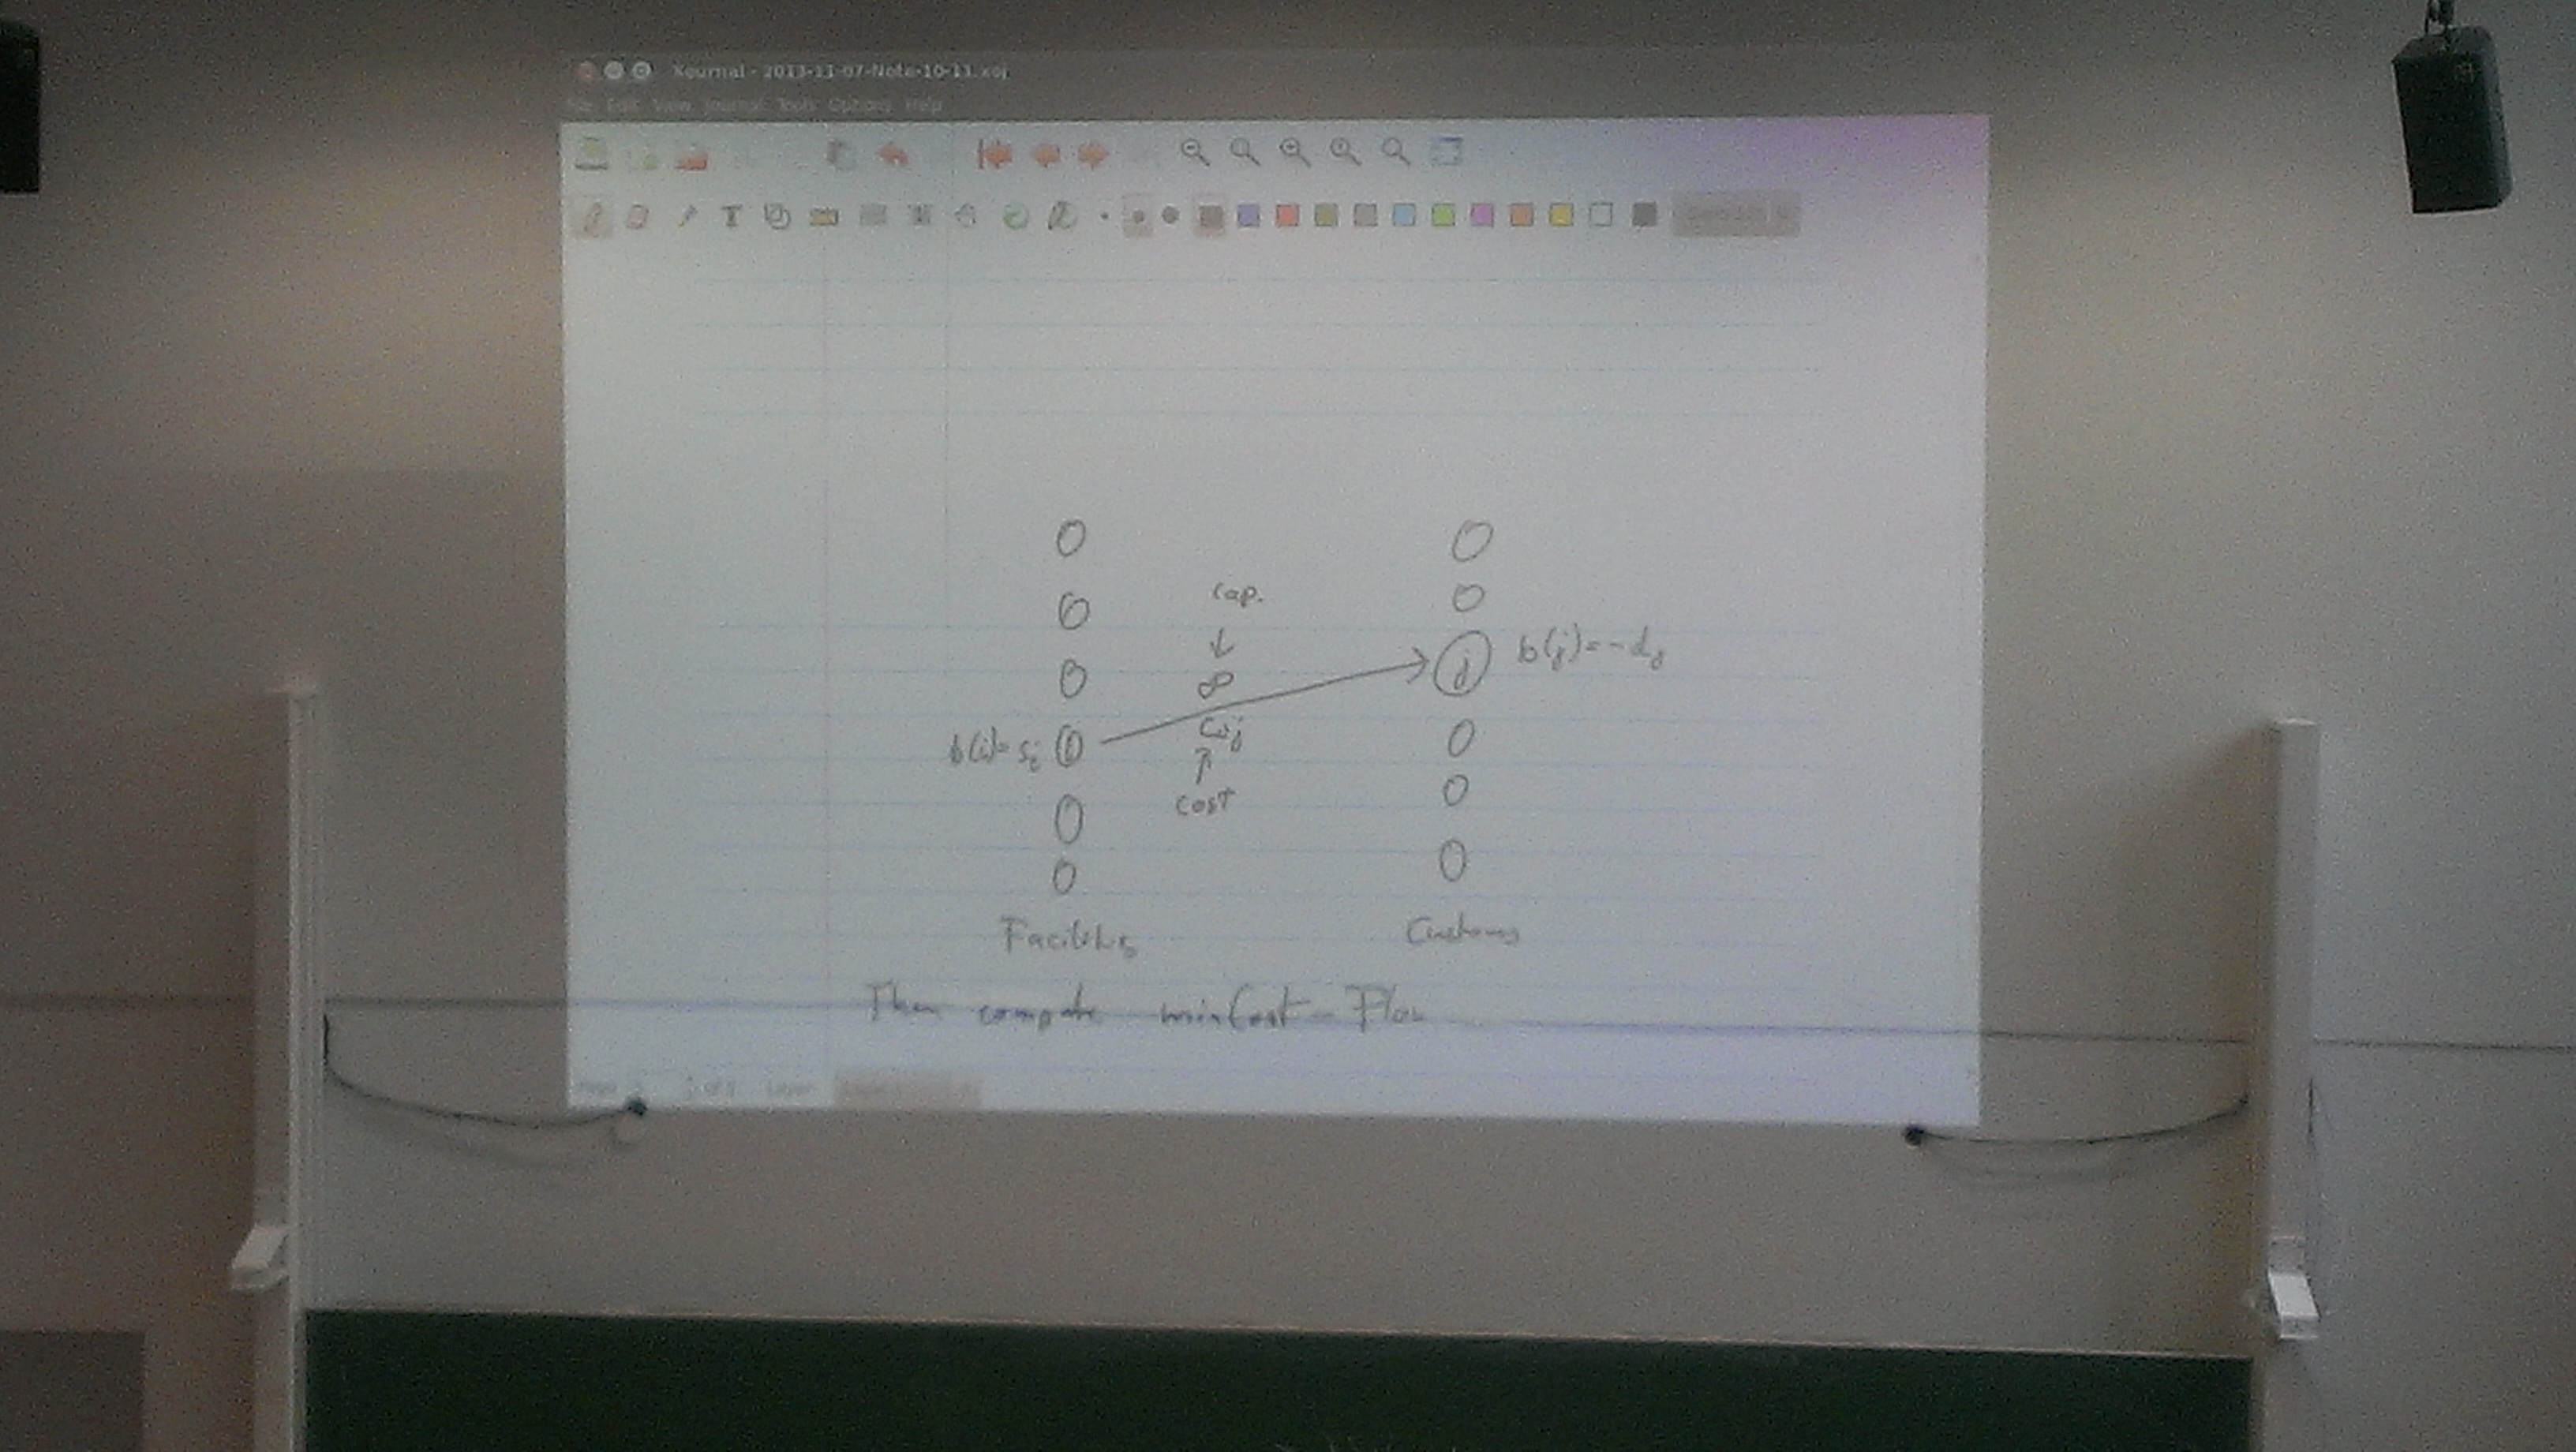 Xournal - 2013-11-07-Note-10-11.xoj
File Edit View Journal Tools Options Help
T
cap.
↓
∞
j
b(j)=-dj
b(i)=si
i
cij
↑
cost
Facilities
Customers
Then compute minCost-Flow
Page of Layer